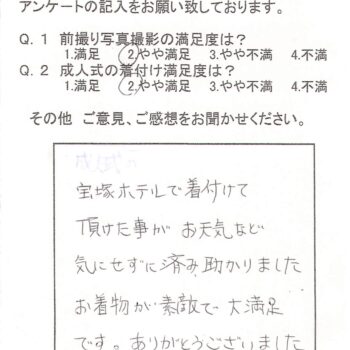 アンケートの記入をお願い致しております。
Q.1 前撮り写真撮影の満足度は？
1.満足 2.やや満足 3.やや不満 4.不満
Q.2 成人式の着付け満足度は？
1.満足 2.やや満足 3.やや不満 4.不満
その他 ご意見、ご感想をお聞かせください。
成人式の
宝塚ホテルで着付けて
頂けた事が お天気など
気にせずに済み助かりました
お着物が素敵で大満足
です。ありがとうございました